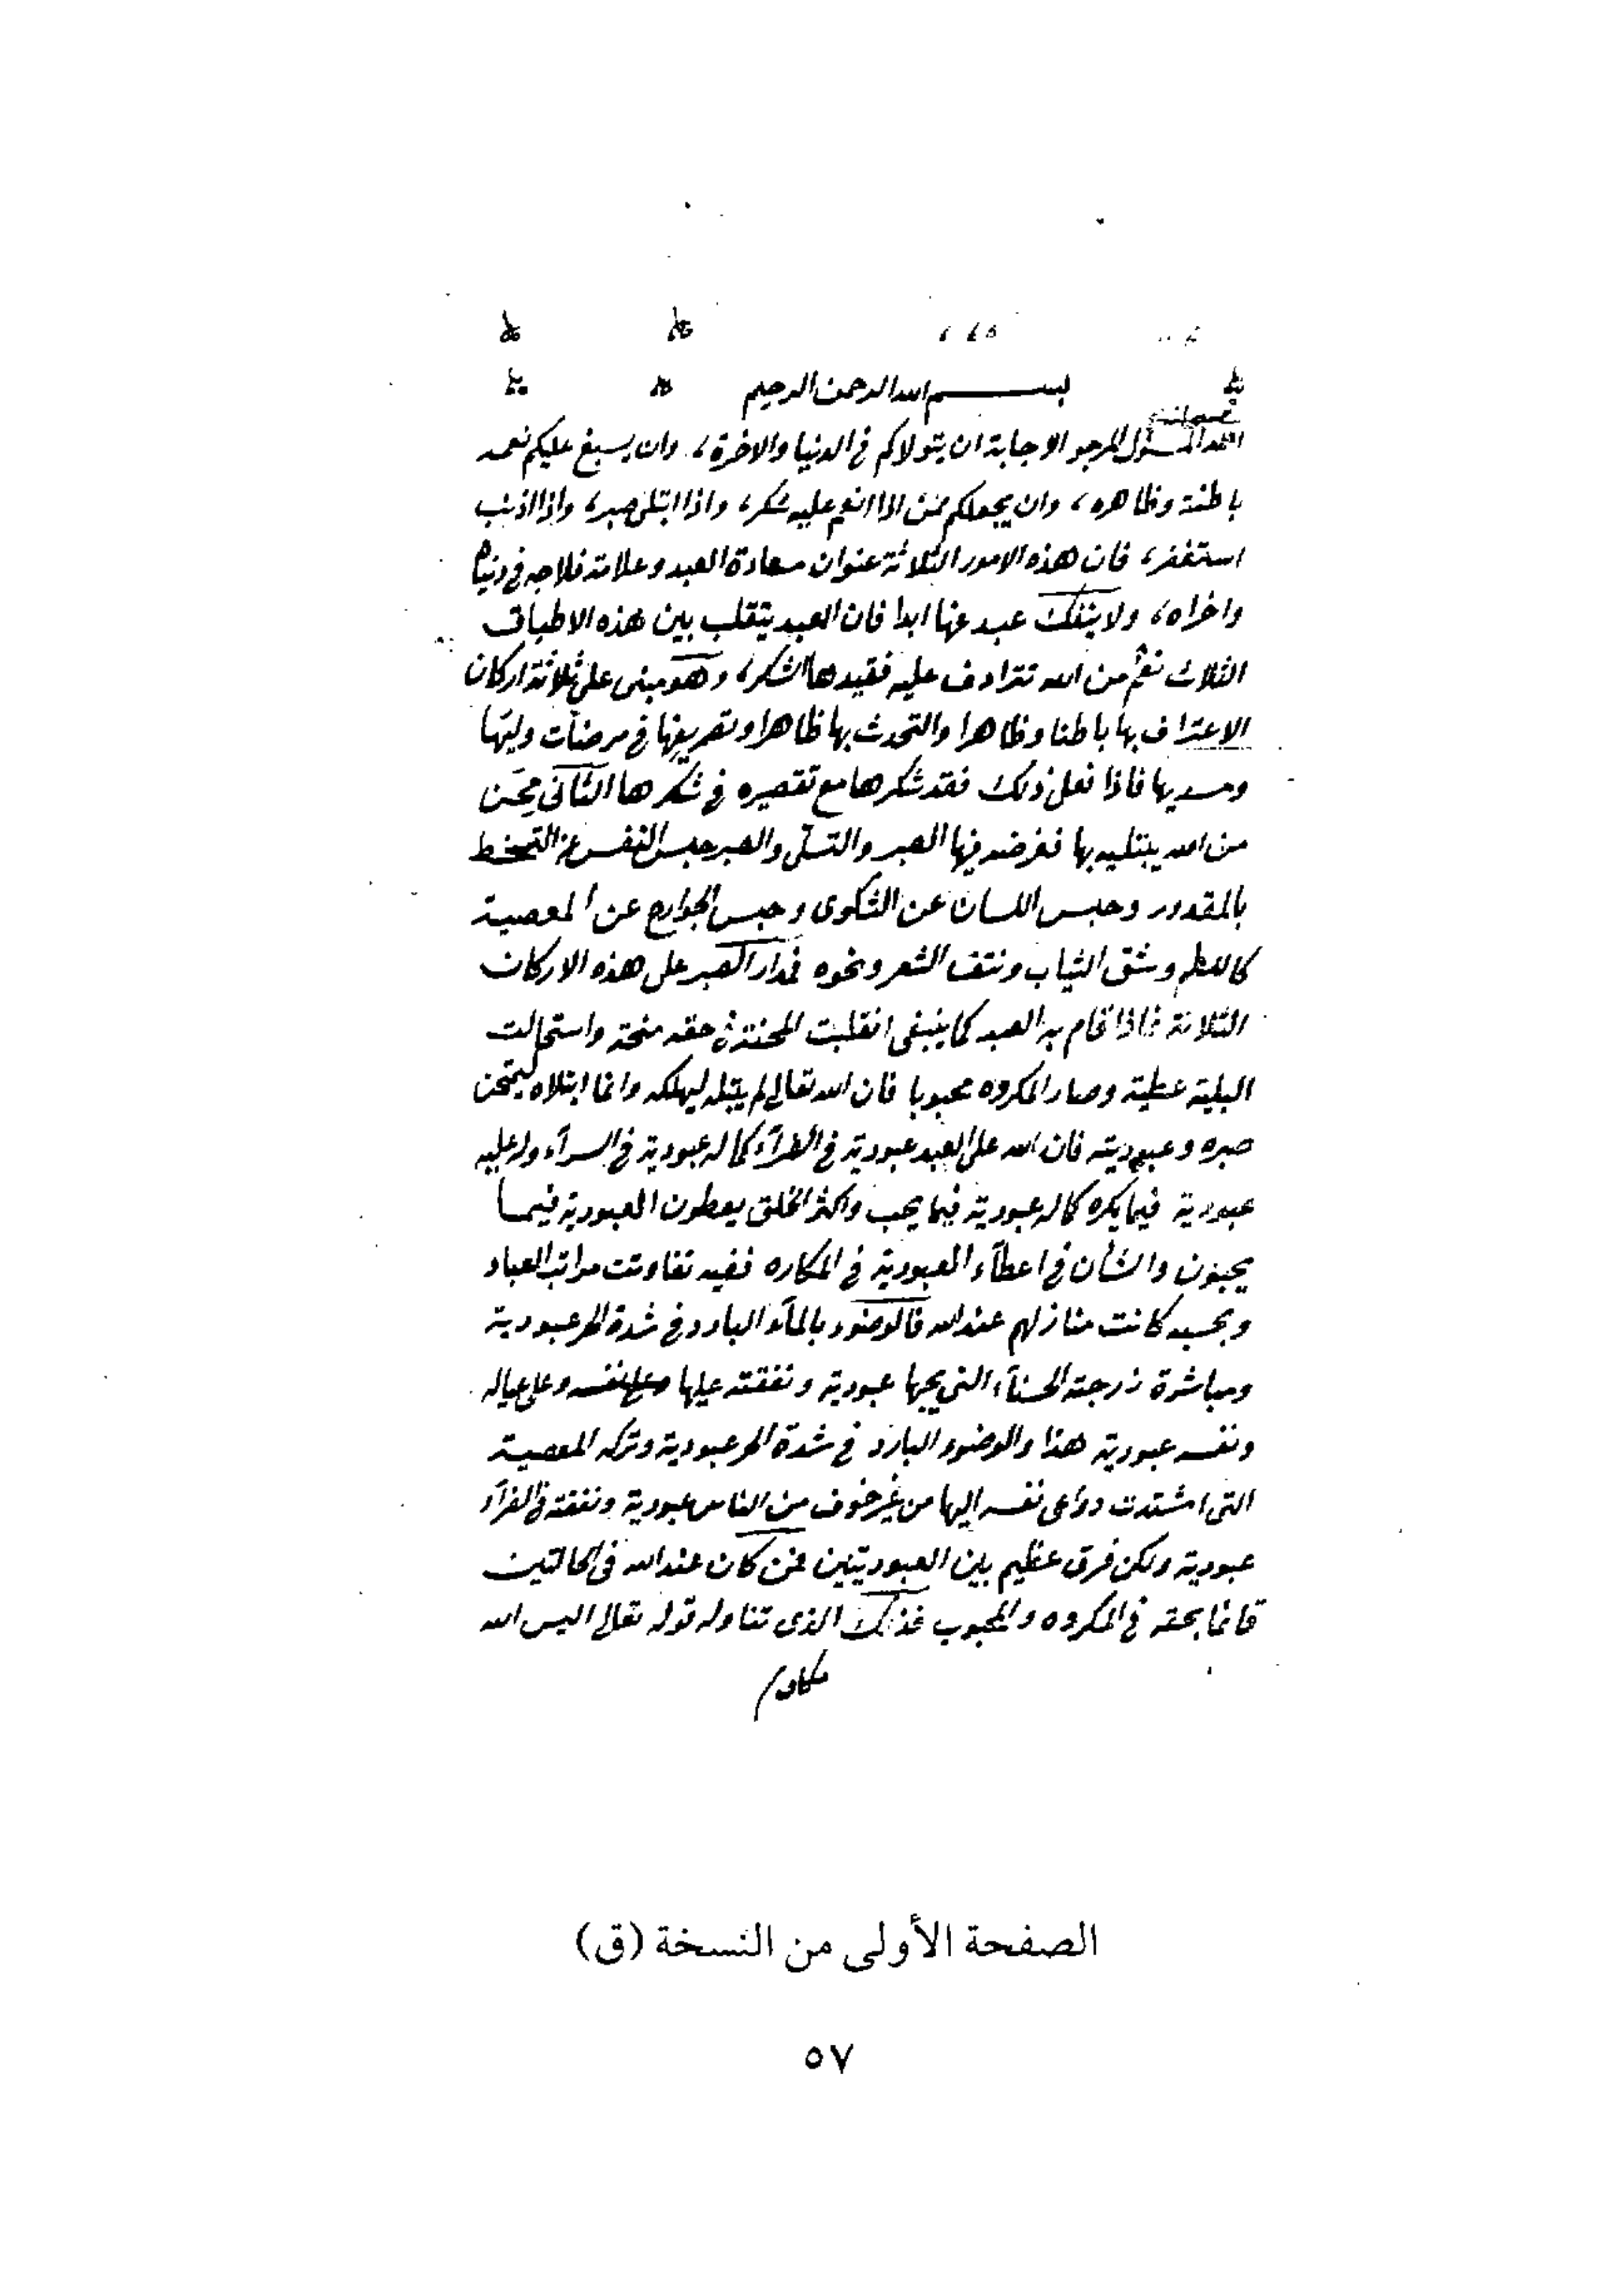 بسم الله الرحمن الرحيم
الله المسئول المرجو الاجابة ان يتولاكم في الدنيا والاخرة، وان يسبغ عليكم نعمه
باطنة وظاهره، وان يجعلكم ممن اذا انعم عليه شكر، واذا ابتلى صبر، واذا اذنب
استغفر، فان هذه الامور الثلاثة عنوان سعادة العبد وعلامة فلاحه في دنياه
واخراه، ولا ينفك عبد عنها ابدا فان العبد يتقلب بين هذه الاطباق
الثلاث نعم من الله تترادف عليه فقيدها الشكر، وهو مبنى على ثلاثة اركان
الاعتراف بها باطنا وظاهرا والتحدث بها ظاهرا وتصريفها في مرضات وليها
ومسديها فاذا فعل ذلك فقد شكرها مع تقصيره في شكرها الثانى محن
من الله يبتليه بها ففرضه فيها الصبر والتسلى والصبر حبس النفس عن التسخط
بالمقدور وحبس اللسان عن الشكوى وحبس الجوارح عن المعصية
كاللطم وشق الثياب ونتف الشعر ونحوه فمدار الصبر على هذه الاركان
الثلاثة فاذا قام به العبد كما ينبغى انقلبت المحنة في حقه منحة واستحالت
البلية عطية وصار المكروه محبوبا فان الله تعالى لم يبتله ليهلكه وانما ابتلاه ليمتحن
صبره وعبوديته فان لله على العبد عبودية في الضرآء كما له عبودية في السرآء وله عليه
عبودية فيما يكره كما له عبودية فيما يحب واكثر الخلق يعطون العبودية فيما
يحبون والشأن في اعطآء العبودية في المكاره ففيه تفاوتت مراتب العباد
وبحسبه كانت منازلهم عند الله فالوضوء بالمآء البارد في شدة الحر عبودية
ومباشرة زوجته الحسنآء التى يحبها عبودية ونفقته عليها وعلى نفسه وعلى عياله
ونفسه عبودية هذا والوضوء البارد في شدة الحر عبودية وتركه المعصية
التى اشتدت دواعى نفسه اليها من غير خوف من الناس عبودية ونفقته في الضرآء
عبودية ولكن فرق عظيم بين العبوديتين فمن كان عند الله في الحالتين
قائما بحقه في المكروه والمحبوب فذلك الذى تناوله قوله تعالى اليس الله
بكاف
الصفحة الأولى من النسخة (ق)
٥٧